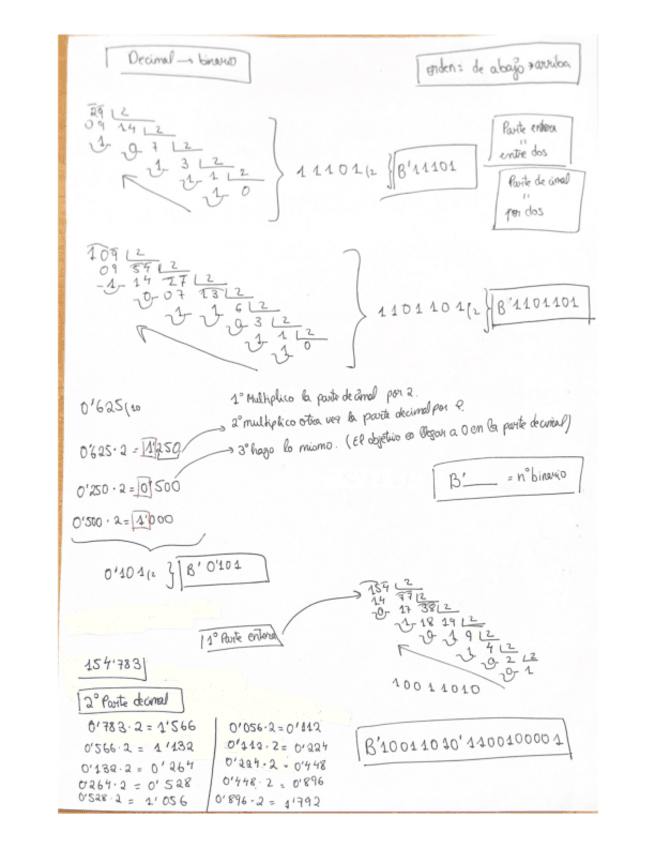 Decimal → binario
orden: de abajo → arriba
29 2
09 14 2
1 0 7 2
1 3 2
1 1 2
1 0
11101(2 } B'11101
Parte entera
"
entre dos
Parte decimal
"
por dos
109 2
09 54 2
1 14 27 2
0 07 13 2
1 1 6 2
0 3 2
1 1 2
1 0
1101101(2 } B'1101101
0'625(10
1º Multiplico la parte decimal por 2.
2º multiplico otra vez la parte decimal por 2.
3º hago lo mismo. (El objetivo es llegar a 0 en la parte decimal)
0'625·2 = 1'250
0'250·2 = 0'500
0'500·2 = 1'000
B'___ = nº binario
0'101(2 } B'0'101
1º Parte entera
154 2
14 77 2
0 17 38 2
1 18 19 2
0 1 9 2
1 4 2
0 2 2
0 1
10011010
154'783
2º Parte decimal
0'783·2 = 1'566
0'566·2 = 1'132
0'132·2 = 0'264
0'264·2 = 0'528
0'528·2 = 1'056
0'056·2 = 0'112
0'112·2 = 0'224
0'224·2 = 0'448
0'448·2 = 0'896
0'896·2 = 1'792
B'10011010'1100100001